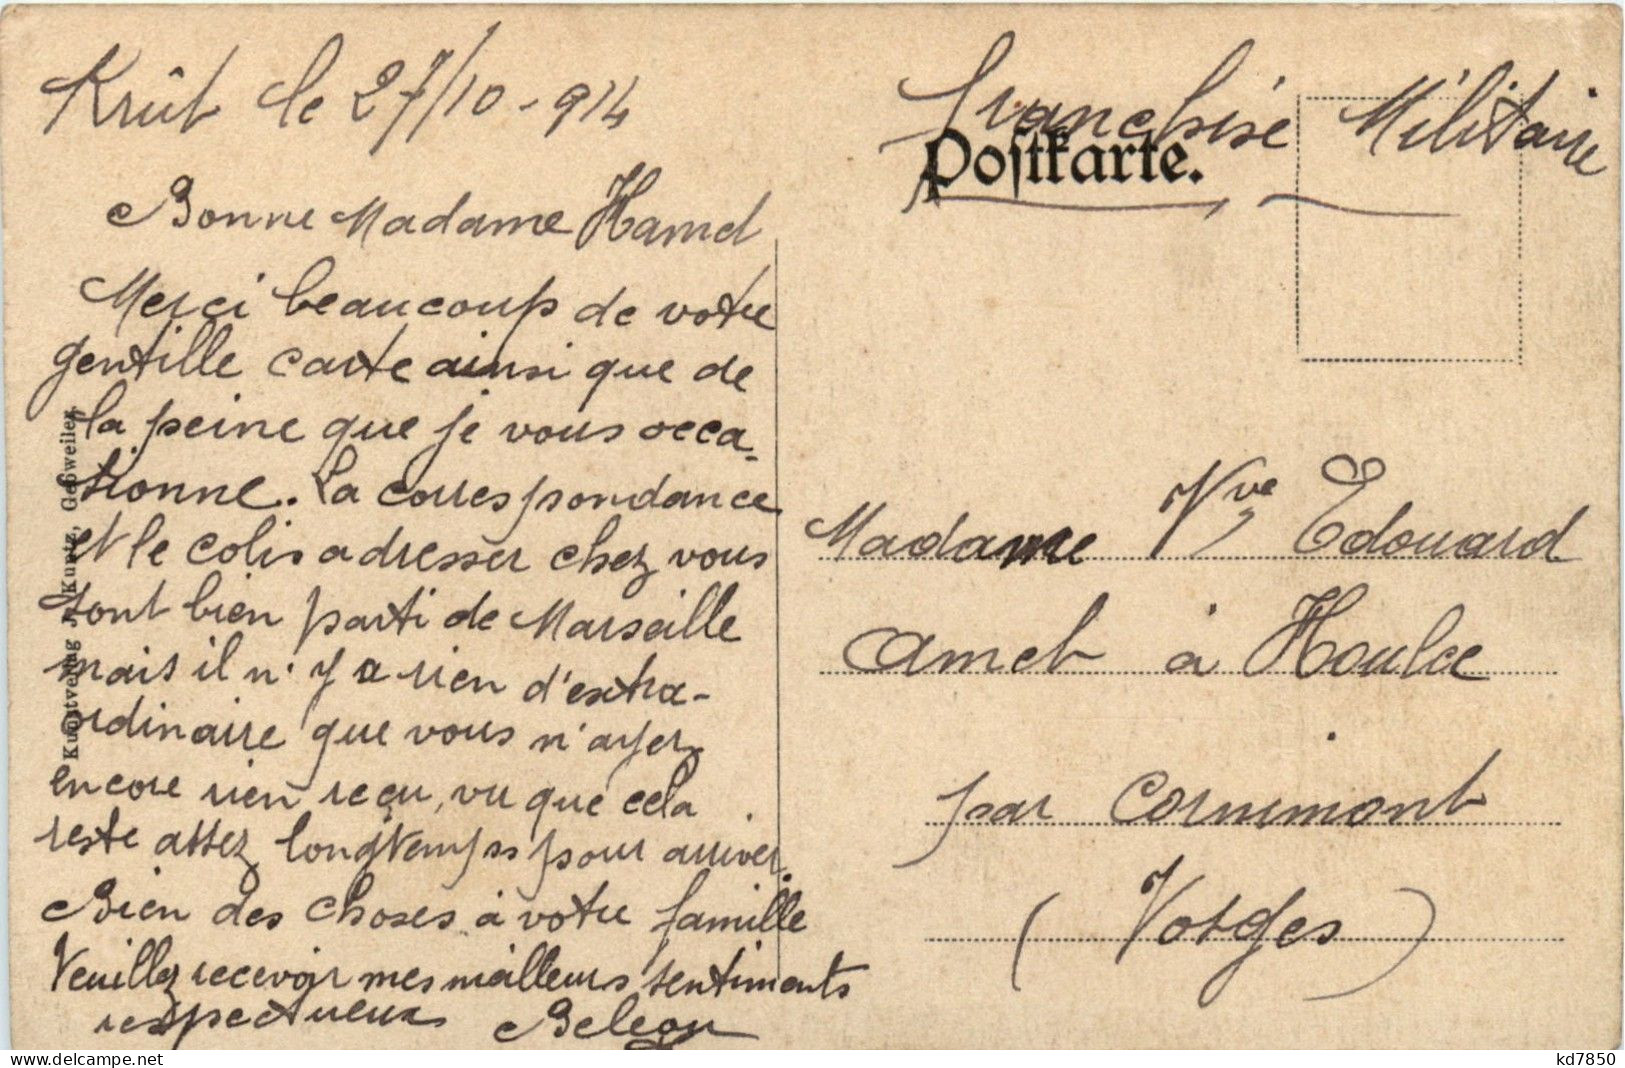 Krüt le 27/10-914
Bonne Madame Hamel
Merci beaucoup de votre
gentille carte ainsi que de
la peine que je vous occa-
sionne. La correspondance
et le colis adresser chez vous
sont bien parti de Marseille
mais il n'y a rien d'extra-
ordinaire que vous n'ayez
encore rien reçu, vu que cela
reste assez longtemps pour arriver.
Bien des choses à votre famille
Veuillez recevoir mes meilleurs sentiments
respectueux
Kunstverlag J. Kuntz, Gebweiler.
Franchise Militaire
Postkarte.
Madame Vve Edouard
à
par Cornimont
(Vosges)
kd7850
www.delcampe.net